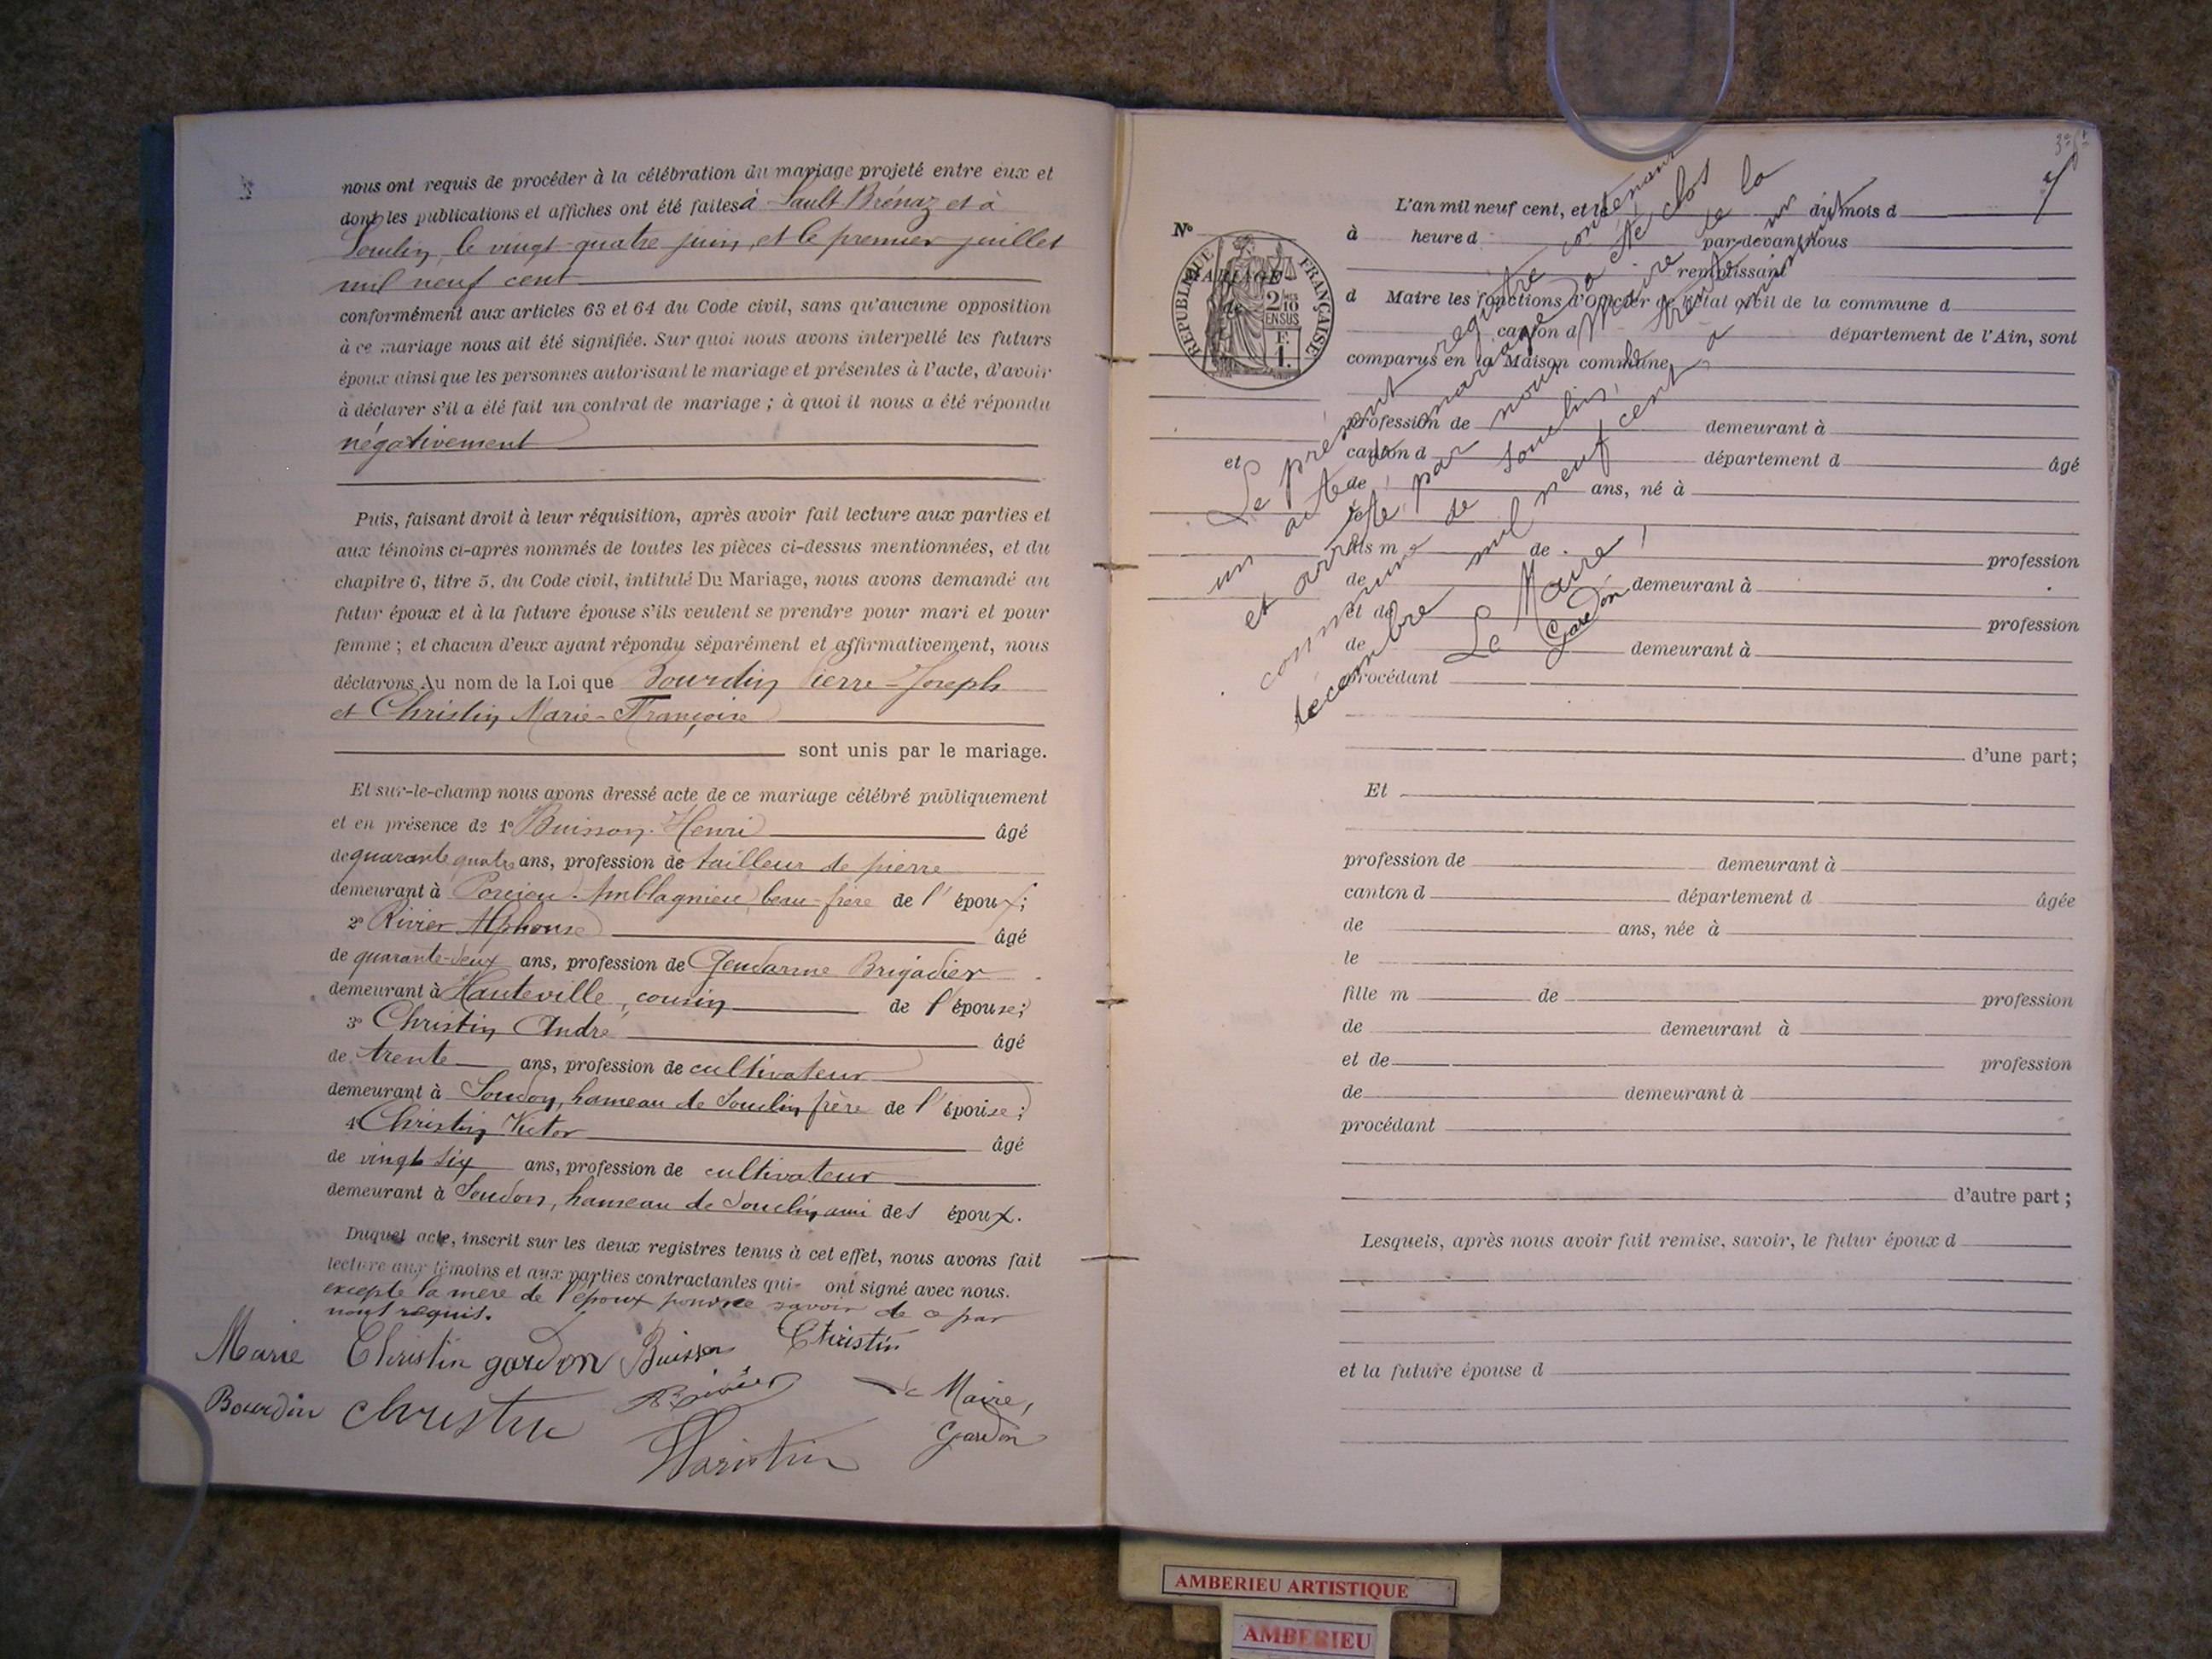 nous ont requis de procéder à la célébration du mariage projeté entre eux et
dont les publications et affiches ont été faites à Sault-Brénaz et à
Souclin, le vingt-quatre juin, et le premier juillet
mil neuf cent
conformément aux articles 63 et 64 du Code civil, sans qu'aucune opposition
à ce mariage nous ait été signifiée. Sur quoi nous avons interpellé les futurs
époux ainsi que les personnes autorisant le mariage et présentes à l'acte, d'avoir
à déclarer s'il a été fait un contrat de mariage ; à quoi il nous a été répondu
négativement
Puis, faisant droit à leur réquisition, après avoir fait lecture aux parties et
aux témoins ci-après nommés de toutes les pièces ci-dessus mentionnées, et du
chapitre 6, titre 5, du Code civil, intitulé Du Mariage, nous avons demandé au
futur époux et à la future épouse s'ils veulent se prendre pour mari et pour
femme ; et chacun d'eux ayant répondu séparément et affirmativement, nous
déclarons Au nom de la Loi que Bourdin Pierre-Joseph
et Christin Marie-Françoise
sont unis par le mariage.
Et sur-le-champ nous avons dressé acte de ce mariage célébré publiquement
et en présence de 1° Buisson Henri âgé
de quarante quatre ans, profession de tailleur de pierre
demeurant à Porcieu-Amblagnieu beau-frère de l'époux;
2° Rivier Alphonse âgé
de quarante-deux ans, profession de Gendarme Brigadier
demeurant à Hauteville, cousin de l'épouse;
3° Christin André âgé
de trente ans, profession de cultivateur
demeurant à Soudon, hameau de Souclin frère de l'épouse;
4° Christin Victor âgé
de vingt six ans, profession de cultivateur
demeurant à Soudon, hameau de Souclin, ami des époux.
Duquel acte, inscrit sur les deux registres tenus à cet effet, nous avons fait
lecture aux témoins et aux parties contractantes qui ont signé avec nous.
excepté la mère de l'époux pour ne savoir de ce par
nous requis.
Marie Christin gardon Buisson Christin
Bourdin Christin Rivier Le Maire,
Christin Gardon
7
N°
MARIAGE
de
et
RÉPUBLIQUE FRANÇAISE
2/10 EN SUS
F. 1.
L'an mil neuf cent, et le du mois d
à heure d par-devant nous
remplissant
d Maire les fonctions d'Officier de l'état civil de la commune d
canton d département de l'Ain, sont
comparus en la Maison commune
profession de demeurant à
canton d département d âgé
de ans, né à
le
fils m de profession
de demeurant à
et de profession
de demeurant à
procédant
d'une part;
Le présent registre contenant
un acte de mariage a été clos
et arrêté, par nous Maire de la
commune de Souclin, le trente un
décembre mil neuf cent à minuit
Le Maire,
Gardon
Et
profession de demeurant à
canton d département d âgée
de ans, née à
le
fille m de profession
de demeurant à
et de profession
de demeurant à
procédant
d'autre part ;
Lesquels, après nous avoir fait remise, savoir, le futur époux d
et la future épouse d
AMBERIEU ARTISTIQUE
AMBERIEU